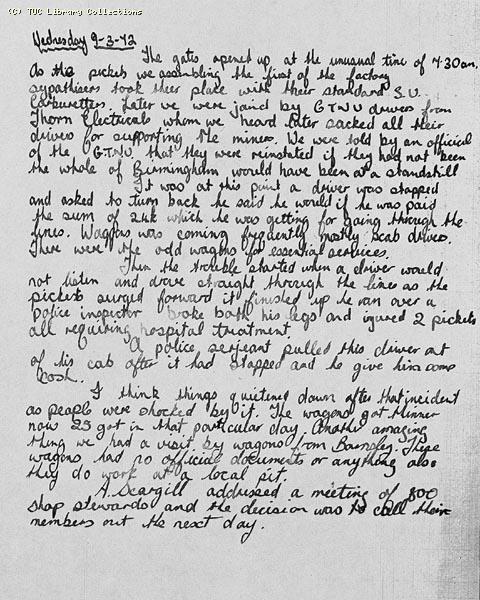 (C) TUC Library Collections
Wednesday 9-3-72
The gates opened up at the unusual time of 7.30am.
As the pickets we assembling the first of the factory
sypathisers took their place with their standard S.U.
Carburettors. Later we were joind by G.T.W.U drivers from
Thorn Electricals whom we heard later sacked all their
drivers for supporting the miners. We were told by an official
of the G.T.W.U. that they were reinstated if they had not been
the whole of Birmingham would have been at a standstill
It was at this point a driver was stopped
and asked to turn back he said he would if he was paid
the sum of which he was getting for going through the
lines. Waggons was coming frequently mostly scab drivers.
There were the odd wagons for essential services.
Then the trouble started when a driver would
not listen and drove straight through the lines as the
pickets surged forward it finished up he ran over a
police inspector broke both his legs and injured 2 pickets
all requiring hospital treatment.
A police sergeant pulled this driver out
of his cab after it had stopped and he give him some
.
I think things quitened down after that incident
as people were shocked by it. The wagons got thinner
now 25 got in that particular day. Another amazing
thing we had a visit by wagons from Barnsley. These
wagons had no official documents or anything also
they do work at a local pit.
A. Scargill addressed a meeting of 800
shop stewards and the decision was to call their
members out the next day.